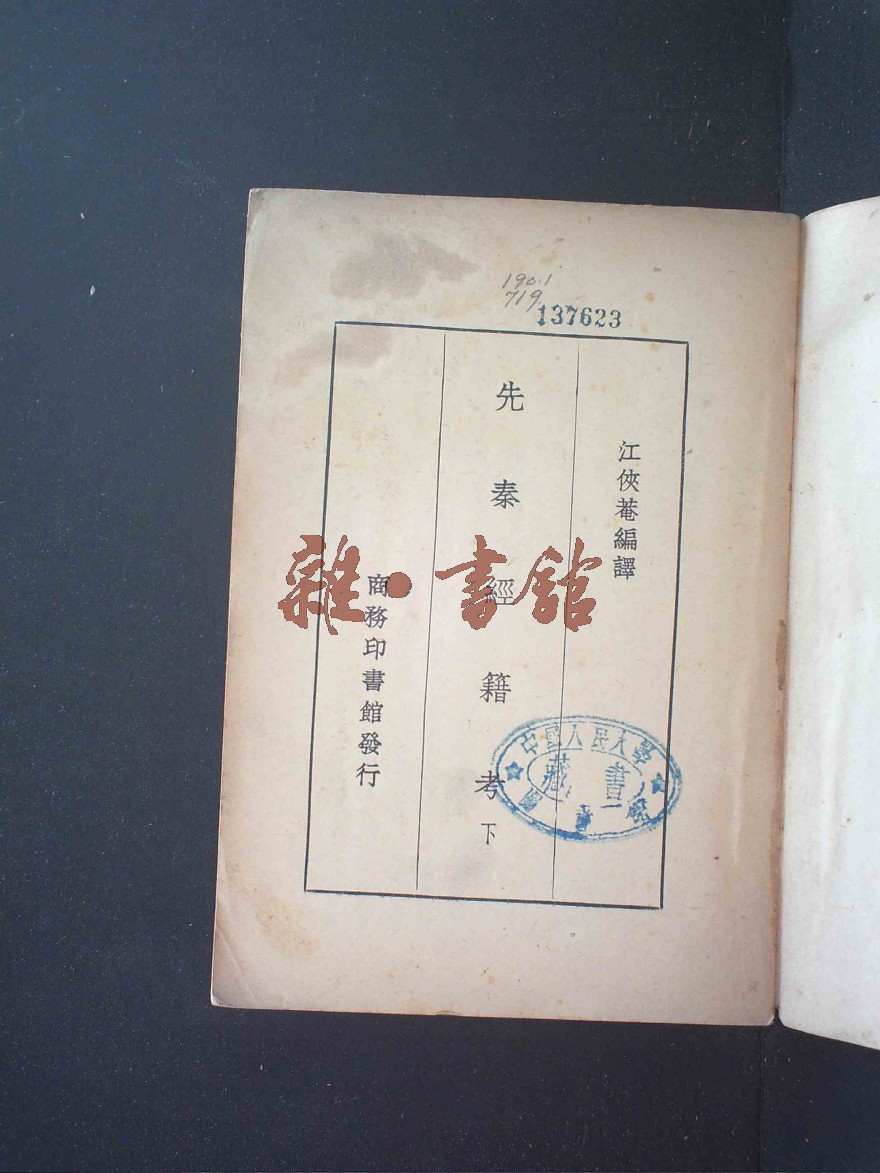 190.1
719
137623
江俠菴編譯
先秦經籍考 下
商務印書館發行
雜·書館
中國人民大學
藏書